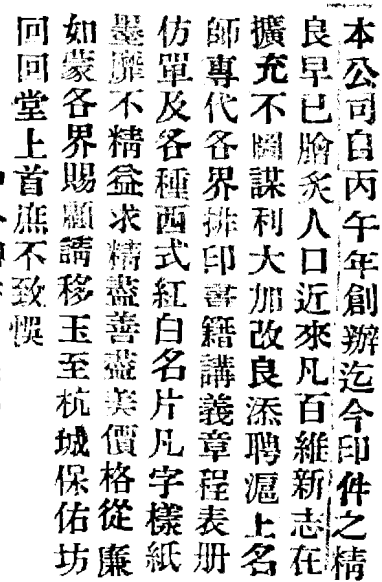 本公司自丙午年創辦迄今印件之精
良早已膾炙人口近來凡百維新志在
擴充不圖謀利大加改良添聘滬上名
師專代各界排印書籍講義章程表册
仿單及各種西式紅白名片凡字樣紙
墨靡不精益求精盡善盡美價格從廉
如蒙各界賜顧請移玉至杭城保佑坊
回回堂上首庶不致悞